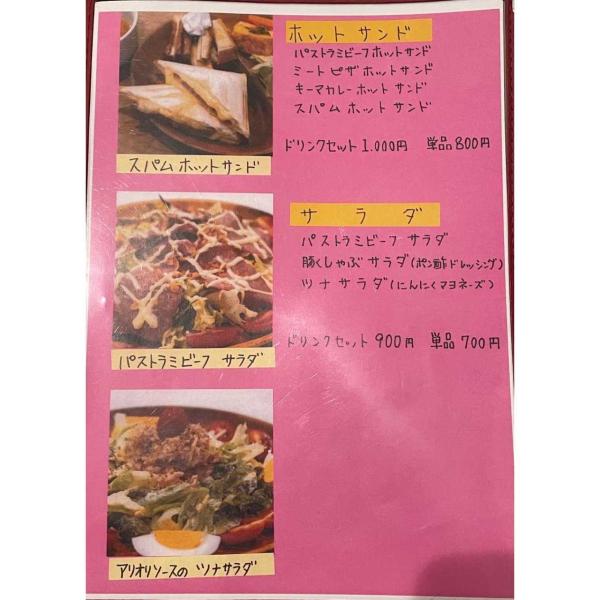 ホットサンド
パストラミビーフホットサンド
ミートピザホットサンド
キーマカレーホットサンド
スパムホットサンド
ドリンクセット 1.000円 単品 800円
スパムホットサンド
サラダ
パストラミビーフ サラダ
豚しゃぶサラダ(ポン酢ドレッシング)
ツナサラダ(にんにくマヨネーズ)
ドリンクセット 900円 単品 700円
パストラミビーフ サラダ
アリオリソースの ツナサラダ